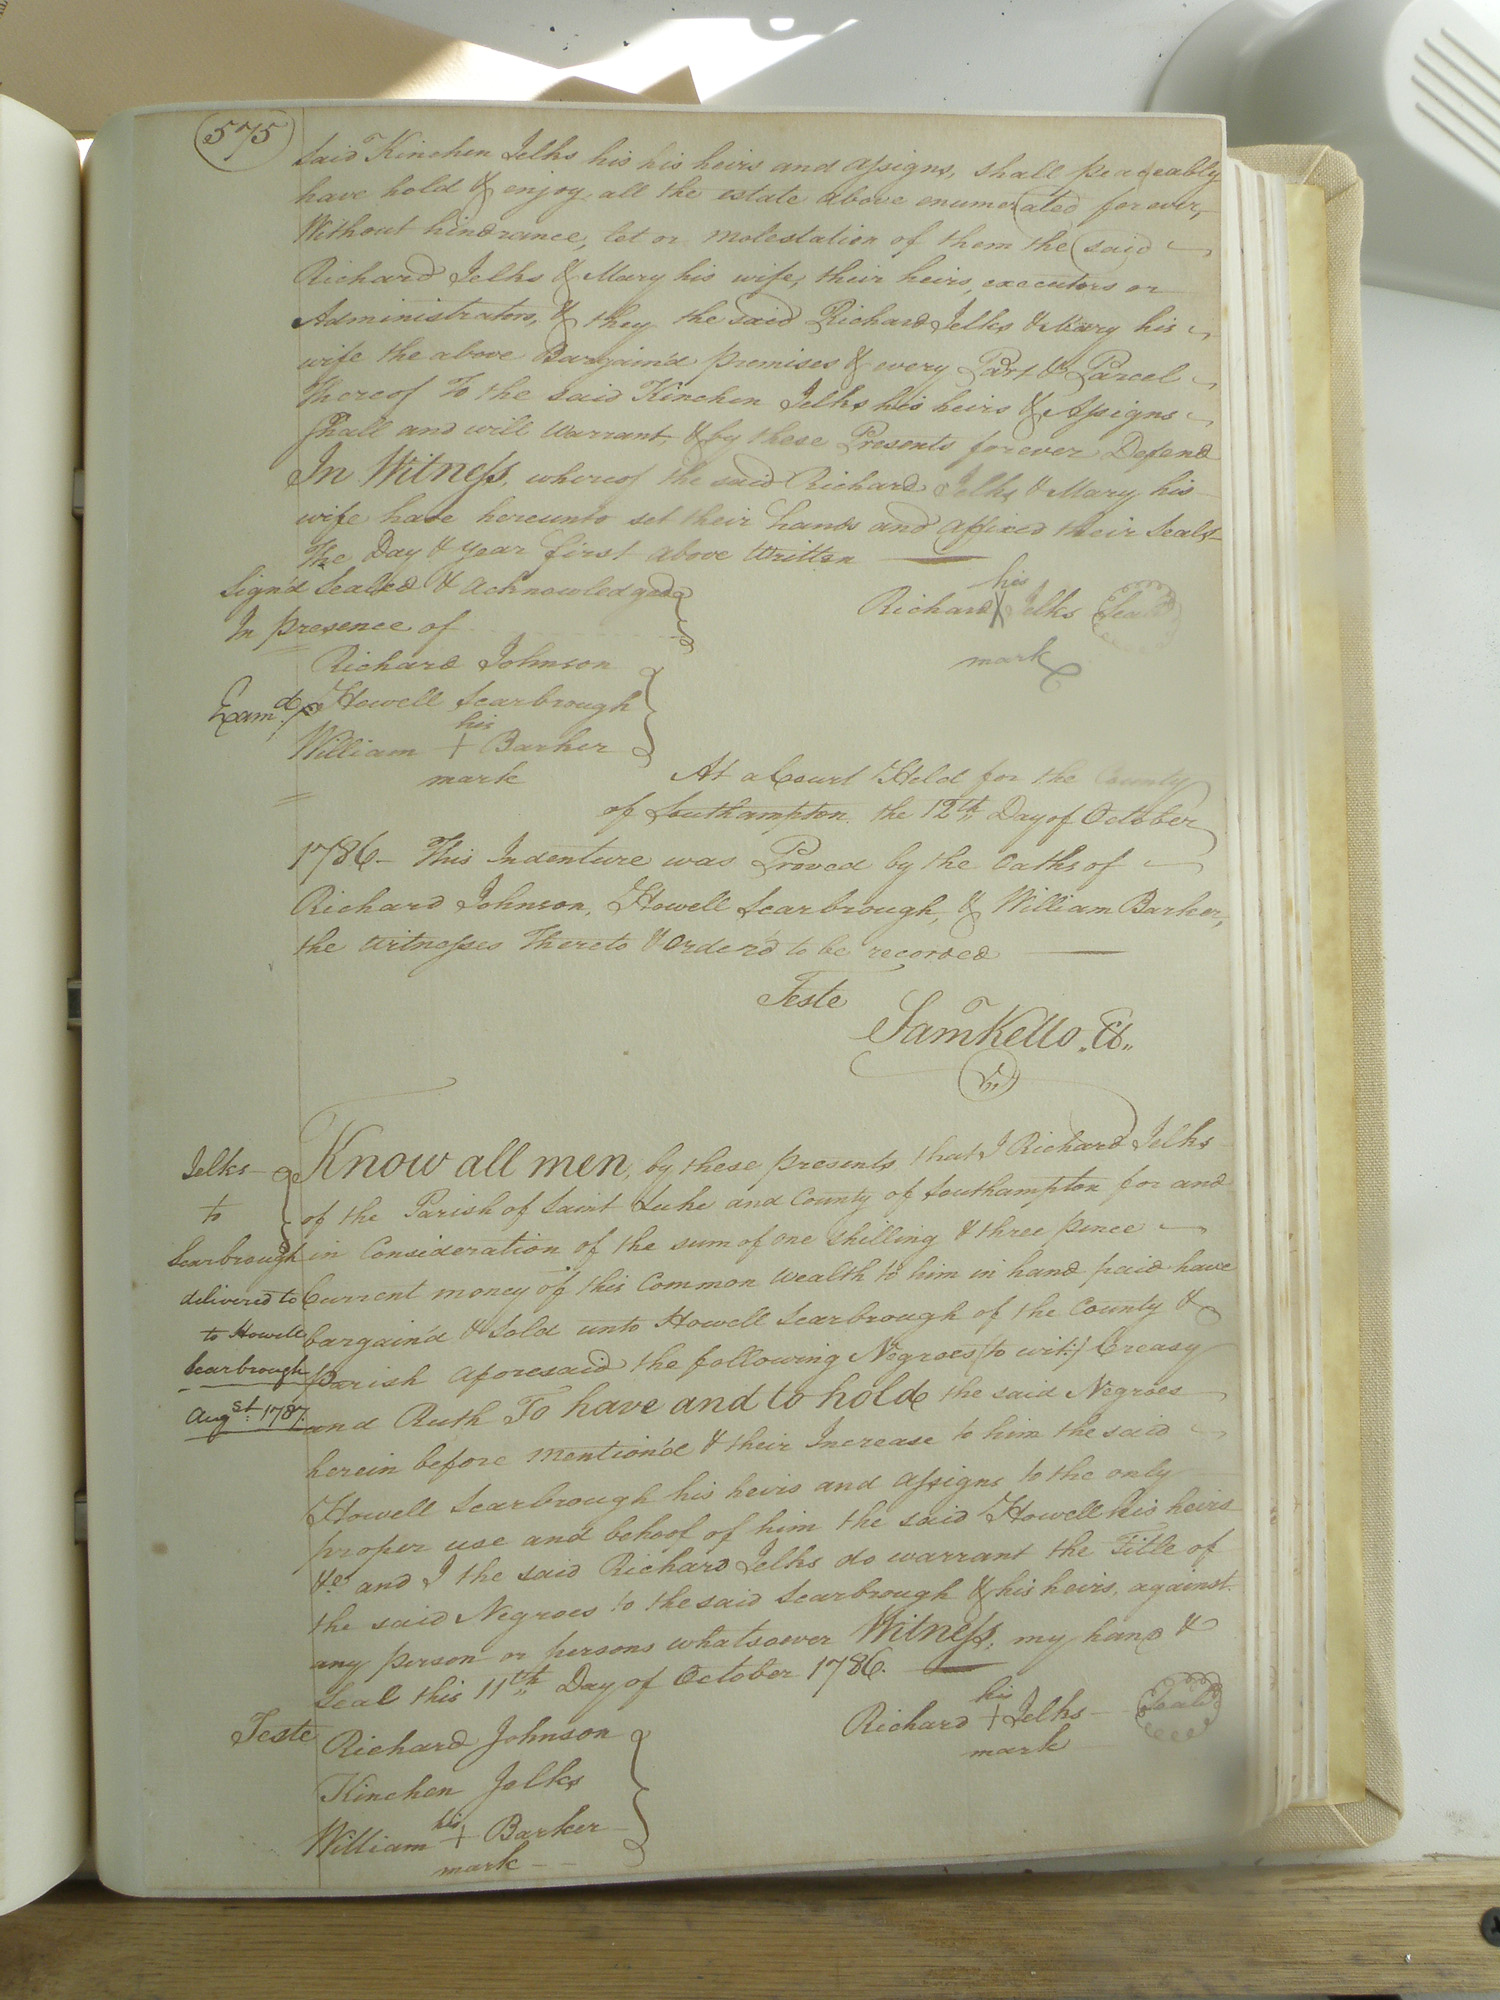 575
said Kinchen Jelks his his heirs and assigns, shall peaceably
have hold & enjoy, all the estate above enumerated for ever,
Without hindrance, let or molestation of them the said
Richard Jelks & Mary his wife, their heirs, executors or
Administrators, & they the said Richard Jelks & Mary his
wife the above Bargain'd premises & every Part & Parcel
Thereof To the said Kinchen Jelks his heirs & Assigns
Shall and will Warrant, & by these Presents forever Defend
In Witness, whereof the said Richard Jelks & Mary his
wife have hereunto set their hands and affixed their Seals
The Day & year first above Written
Sign'd Sealed & acknowledged
In presence of
his
Richard X Jelks Seal
mark
Richard Johnson
Exam.d Howell Scarbrough
his
William + Barker
mark
At a Court Held for the County
of Southampton the 12th Day of October
1786 - This Indenture was Proved by the Oaths of
Richard Johnson, Howell Scarbrough, & William Barker,
the Witnesses Thereto & Orderd to be recorded
Teste
Saml Kello Ck
Jelks
to
Scarbrough
delivered to
to Howell
Scarbrough
Augst. 1787.
Know all men, by these presents that I Richard Jelks
of the Parish of Saint Luke and County of Southampton for and
in Consideration of the sum of one Shilling & three pence
Current money of this Common Wealth to him in hand paid have
bargain'd & Sold unto Howell Scarbrough of the County &
Parish aforesaid the following Negroes (to wit:) Creasy
and Ruth To have and to hold the said Negroes
herein before mention'd & their Increase to him the said
Howell Scarbrough his heirs and assigns to the only
proper use and behoof of him the said Howell his heirs
&c. and I the said Richard Jelks do warrant the Title of
the said Negroes to the said Scarbrough & his heirs, against
any person or persons whatsoever Witness, my hand &
Seal this 11th Day of October 1786.
his
Richard + Jelks Seal
mark
Teste Richard Johnson
Kinchen Jelks
his
William + Barker
mark